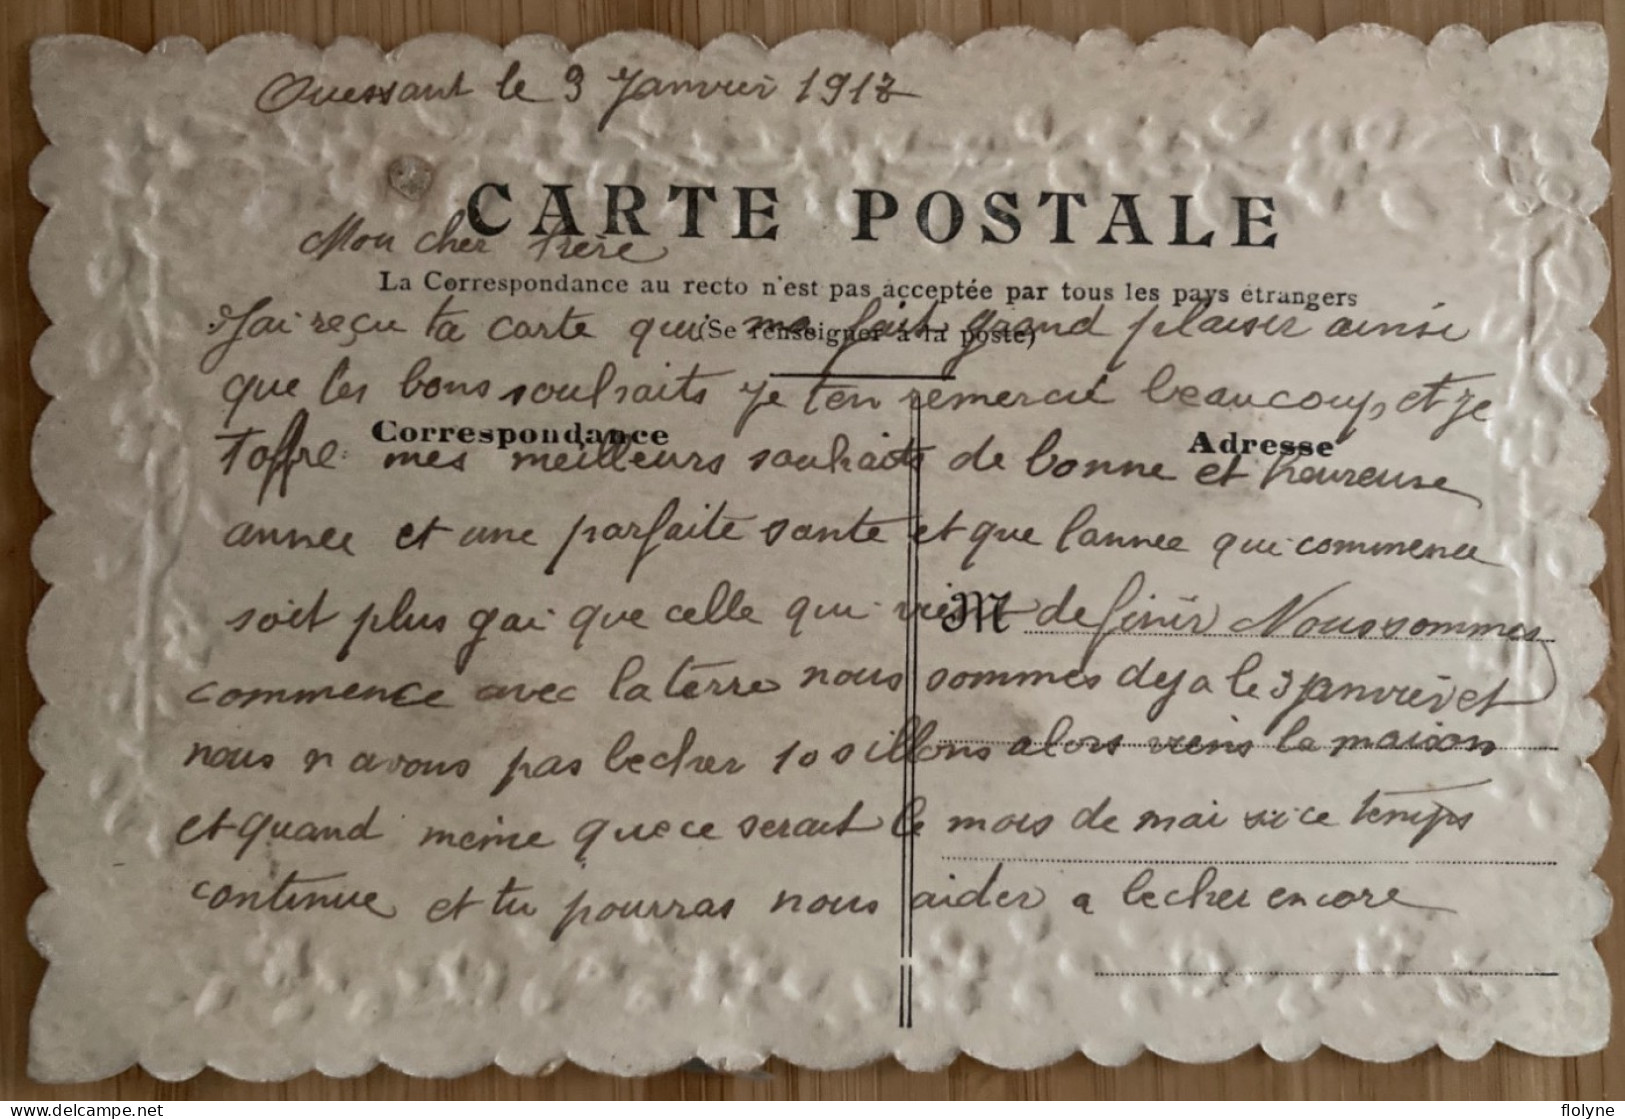 Ouessant le 3 Janvier 1917
CARTE POSTALE
Mon cher frère
La Correspondance au recto n'est pas acceptée par tous les pays étrangers
(Se renseigner à la poste)
J'ai reçu ta carte qui ma fait grand plaisir ainsi
que les bons souhaits je ten remercie beaucoup, et je
Correspondance
Adresse
toffre mes meilleurs souhaits de bonne et heureuse
année et une parfaite sante et que lannee qui commence
soit plus gai que celle qui vient de finir Nous sommes
M
commence avec la terre nous sommes deja le 3 janvier et
nous n avons pas becher 10 sillons alors viens la maison
et quand meine que ce serait le mois de mai si ce temps
continue et tu pourras nous aider a becher encore
folyne
www.delcampe.net